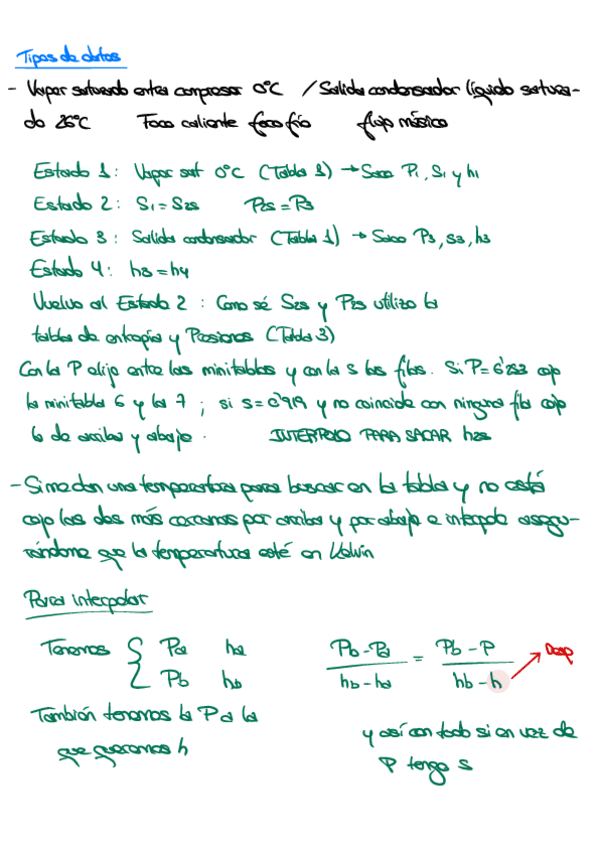 Tipos de datos
- Vapor saturado entra compresor 0°C / Salida condensador líquido satura-
do 26°C Foco caliente foco frío flujo másico
Estado 1: Vapor sat 0°C (Tabla 1) → Saco P1, S1 y h1
Estado 2: S1 = S2s P2s = P3
Estado 3: Salida condensador (Tabla 1) → Saco P3, s3, h3
Estado 4: h3 = h4
Vuelvo al Estado 2: Como sé S2s y P2s utilizo la
tabla de entropía y Presiones (Tabla 3)
Con la P elijo entre las minitablas y con la s las filas. Si P = 6'253 cojo
la minitabla 6 y la 7; si s = 0'919 y no coincide con ninguna fila cojo
la de arriba y abajo. INTERPOLO PARA SACAR h2s
- Si me dan una temperatura para buscar en la tabla y no está
cojo las dos más cercanas por arriba y por abajo e interpolo asegu-
rándome que la temperatura esté en Kelvin
Para interpolar
Tenemos { Pa ha
Pb hb
Pb - Pa / hb - ha = Pb - P / hb - h → Desp
También tenemos la P a la
que queremos h
y así con todo si en vez de
P tengo s